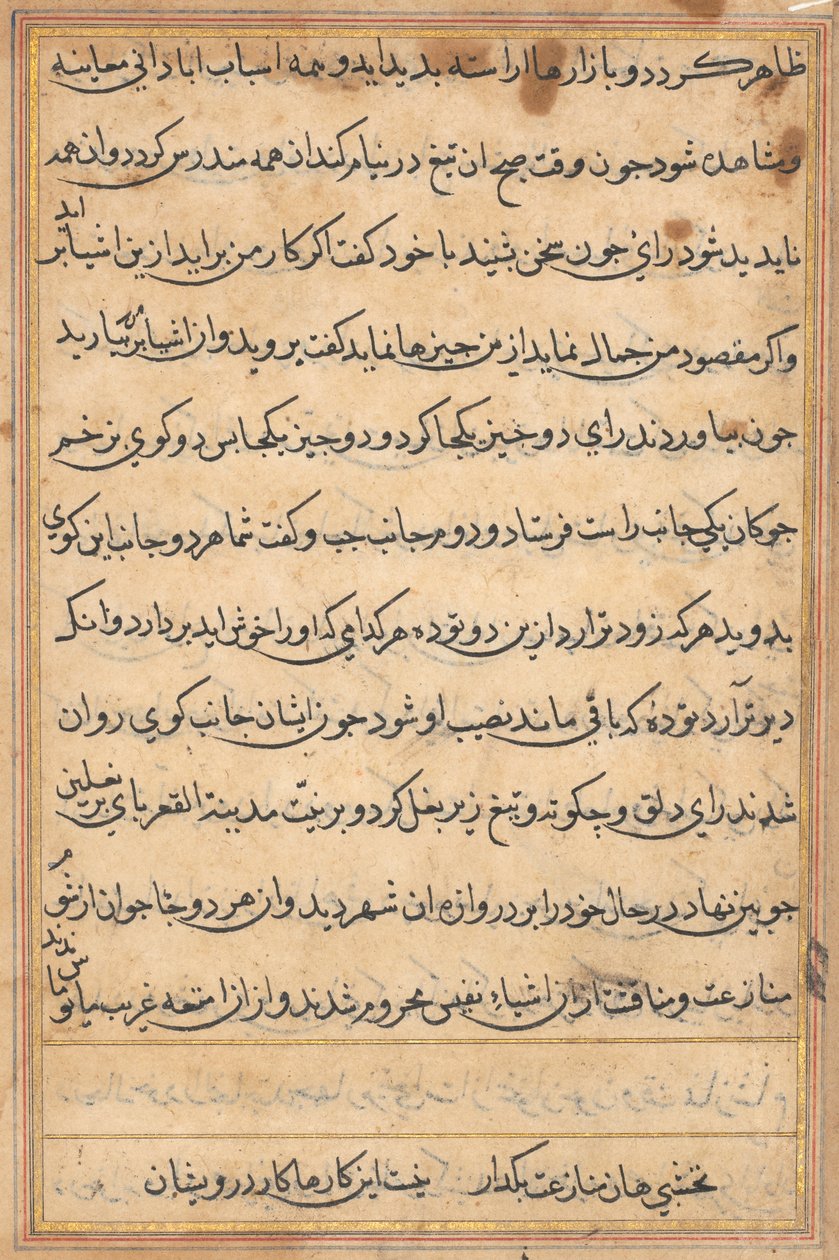 ظاهر کردد و بازارها اراسته بدید اید و همه اسباب ابادانی معاینه
و مشاهده شود جون وقت صبح ان تیغ در نیام کند ان همه مندرس کردد و ان همه
نابدید شود رای جون سخن بشنید با خود کفت اکر کار من براید ازین اشیا براید
و اکر مقصود من جمال نماید ازین جیزها نماید کفت بروید و ان اشیا بر من بیارید
جون بیاوردند رای دو جیز یکجا کرد و دو جیز یکجا بس دو کوی بزخم
جوکان یکی جانب راست فرستاد و دوم جانب جب و کفت شما هر دو جانب این کوی
بدوید هر که زودتر ارد ازین دو توده هر کدامی که او را خوش اید بردارد و انکه
دیرتر آرد تودهٔ که باقی ماند نصیب او شود جون ایشان جانب کوی روان
شدند رای دلق و جکوته و تیغ زیر بغل کرد و بر نیّت مدینة القعر بای بر نعلین
جوبین نهاد در حال خود را بر دروازه ان شهر دید و ان هر دو جوان از شوُم
منازعت و مناقشت ازان اشیاءِ نفیس محروم شدند و ازان امتعه غریب مایوس ماندند
نخشبی هان منازعت بکذار نیست این کارها کار درویشان